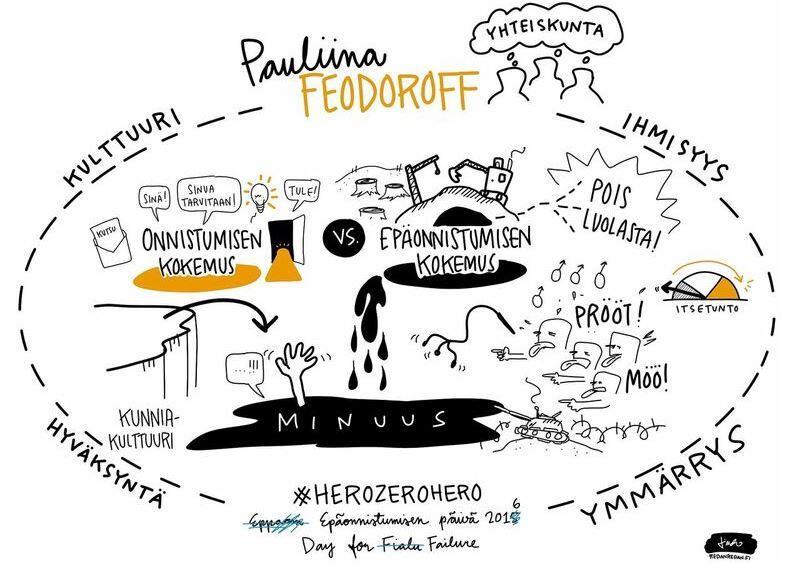 Pauliina
FEODOROFF
YHTEISKUNTA
KULTTUURI
IHMISYYS
SINÄ!
SINUA
TARVITAAN!
TULE!
KUTSU
ONNISTUMISEN
KOKEMUS
VS.
EPÄONNISTUMISEN
KOKEMUS
POIS
LUOLASTA!
PRÖÖT!
MÖÖ!
ITSETUNTO
...!!
MINUUS
KUNNIA-
KULTTUURI
HYVÄKSYNTÄ
YMMÄRRYS
#HEROZEROHERO
Epäonnistumisen päivä 2016
Day for Fialu Failure
REDANREDAN.FI